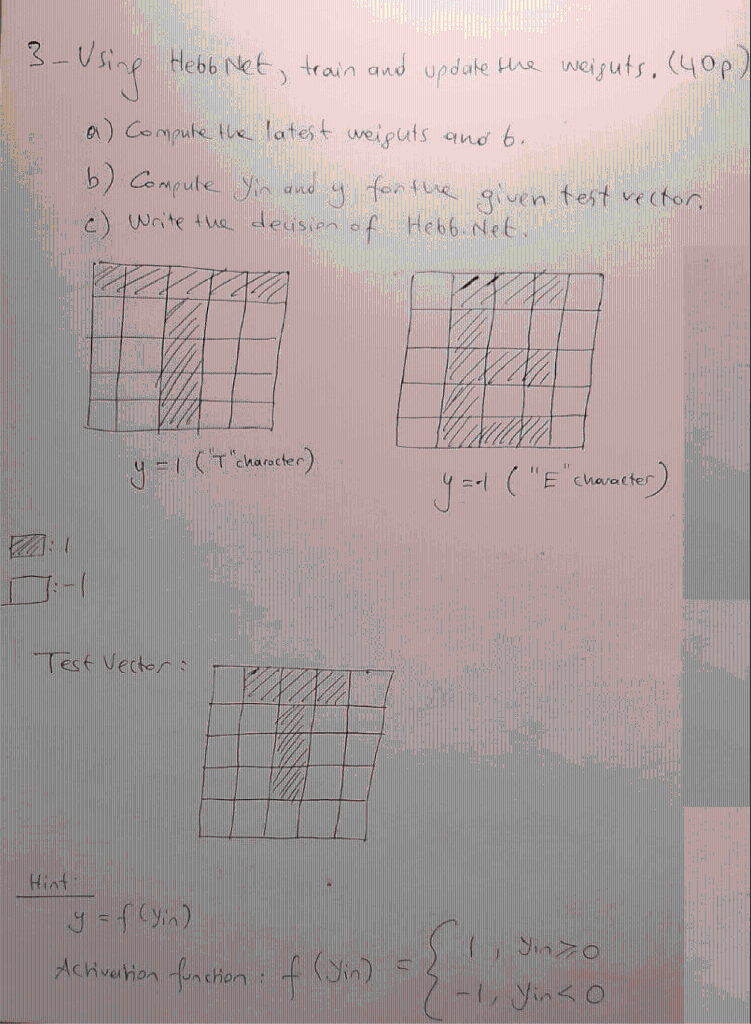 3 - Using Hebb Net, train and update the weiguts. (40p)
a) Compute the latest weiguts and b.
b) Compute yin and y for the given test vector.
c) Write the decision of Hebb. Net.
y = 1 ("T" character)
y = -1 ("E" character)
: 1
: -1
Test Vector :
Hint :
y = f (yin)
Activation function : f (yin) = { 1, yin ≥ 0
-1, yin < 0